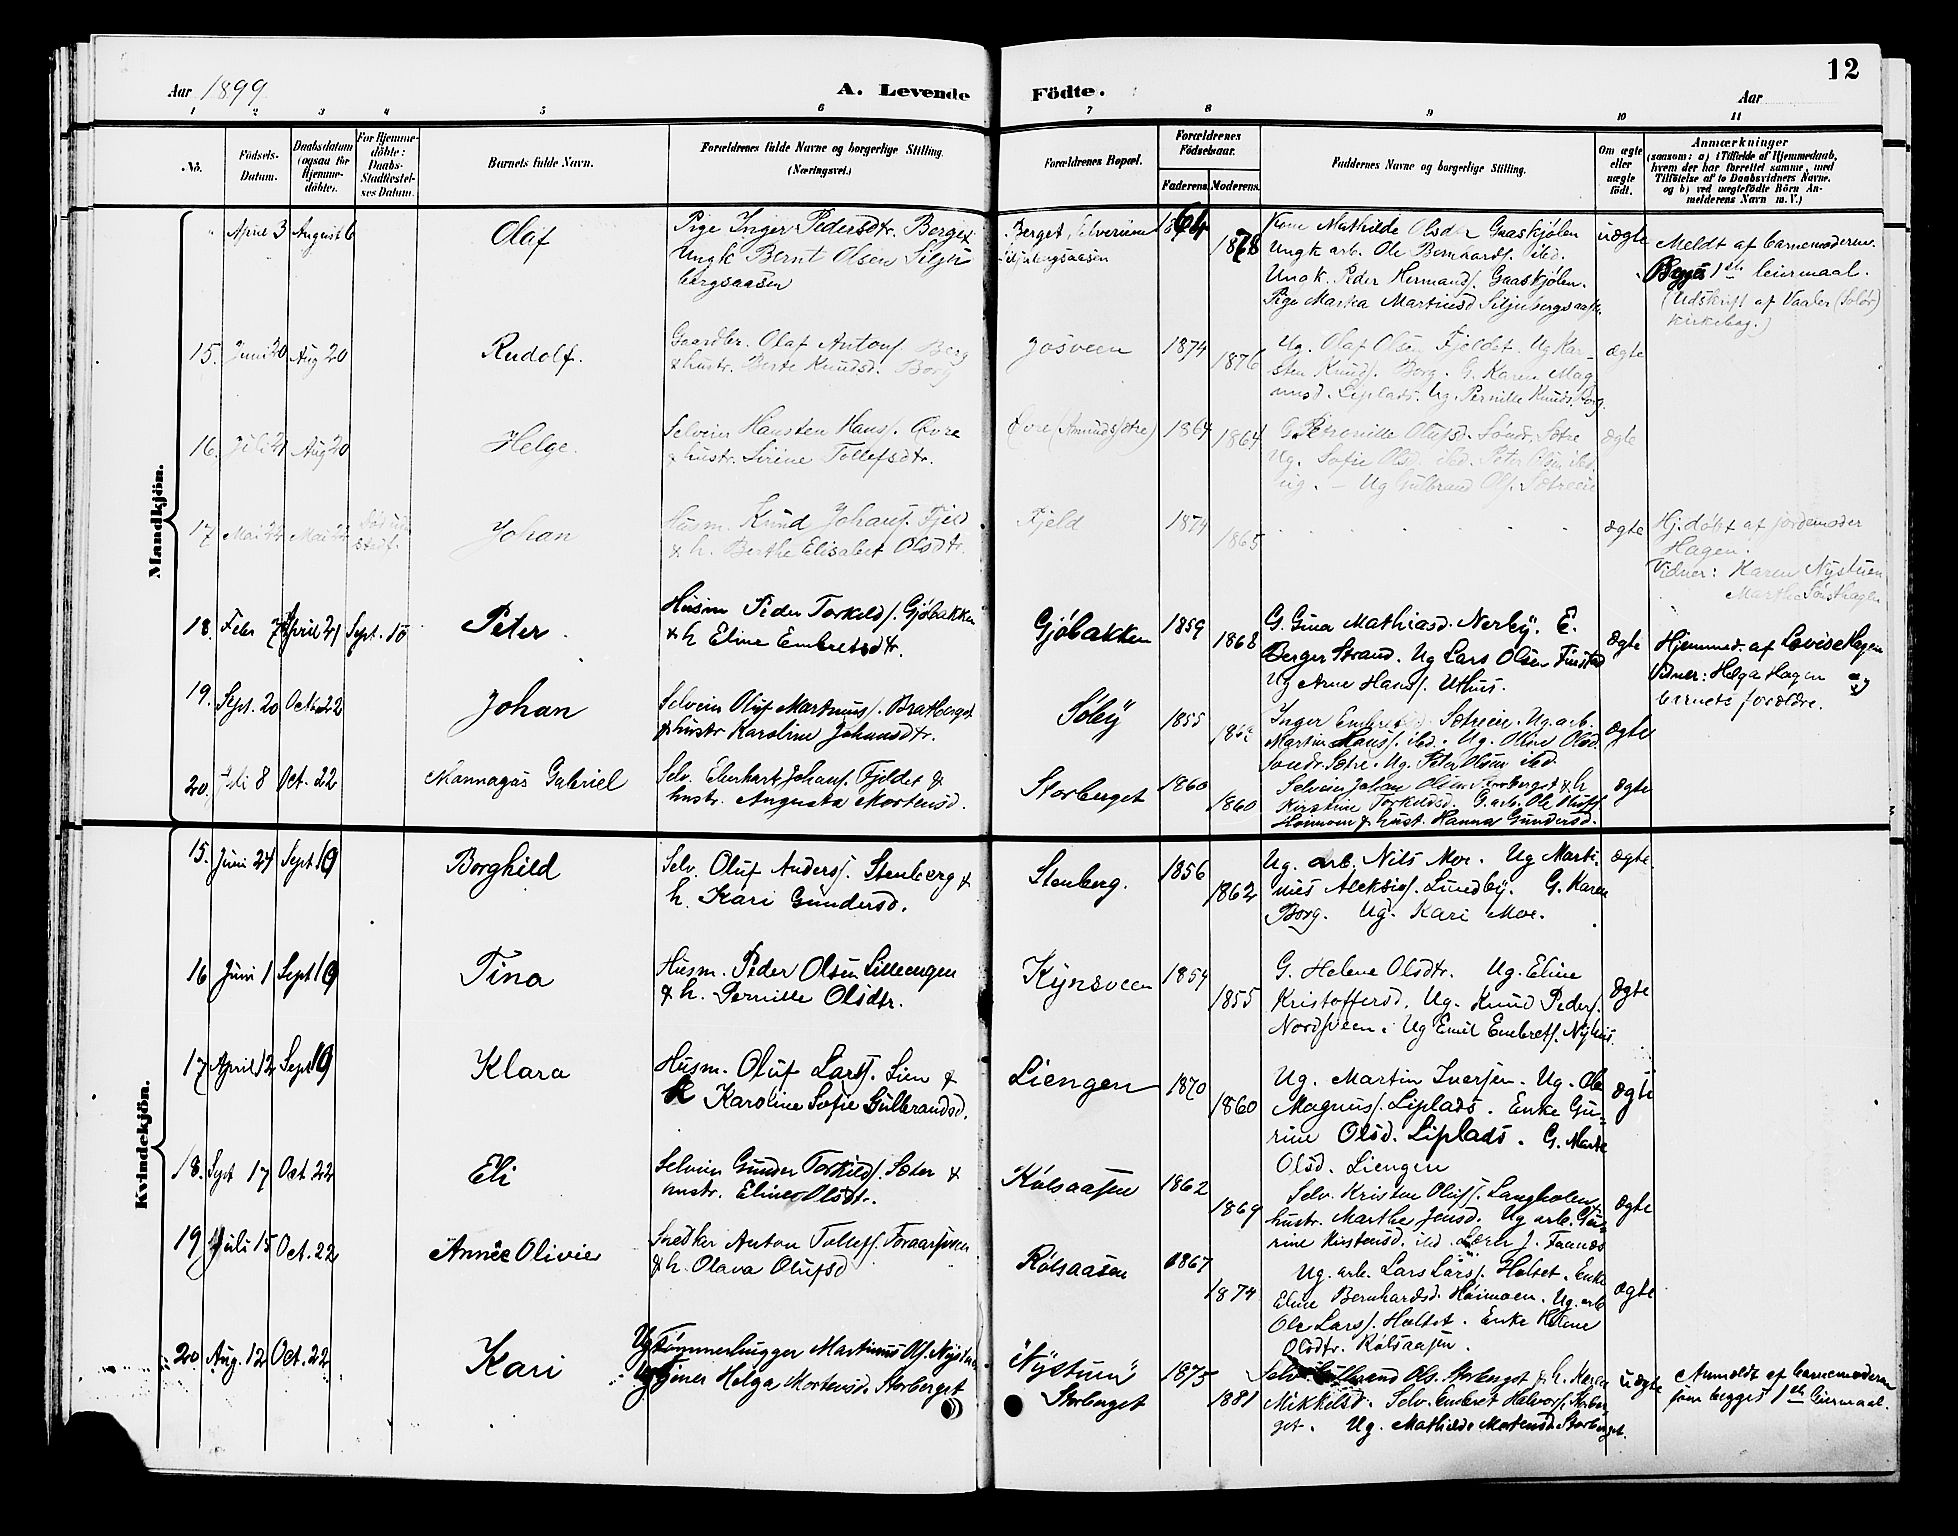 12
Aar 1899
A. Levende Födte.
Aar
1 2 3 4 5 6 7 8 9 10 11
No.
Födsels-
Datum.
Daabsdatum
(ogsaa for
Hjemme-
döbte.
For Hjemme-
döbte:
Daabs-
Stadfæstel-
ses Datum.
Barnets fulde Navn.
Forældrenes fulde Navne og borgerlige Stilling.
(Næringsvei.)
Forældrenes Bopæl.
Forældrenes
Födselsaar.
Faderens.
Moderens.
Faddernes Navne og borgerlige Stilling.
Om ægte
eller
uægte
födt.
Anmærkninger
(saasom: a) i Tilfælde af Hjemmedaab,
hvem der har forrettet samme, med
Tilföielse af to Daabsvidners Navne.
og b) ved uægtefödte Börn An-
melderens Navn m. V.)
Mandkjön.
April 3 August 6
Olaf
Pige Inger Pedersdtr. Berget
Ungk Bernt Olsen Silju
bergsaasen
Berget, Elverum
Siljubergsaasen
1864
1878
Kone Mathilde Olsdtr Gaaskjølen
Ungk arb. Ole Bernhards. ibd.
Ungk. Peder Hermands. Gaaskjølen.
Pige Martea Martinsd Siljubergsaasen
uægte
Meldt af barnemoderen.
Begges 1ste leiermaal.
(Udskrift af Vaaler (Solør)
kirkebog.)
15. Juni 20 Aug 20
Rudolf.
Gaardbr. Olaf Antons Berg
& hustr. Berte Knudsd. Borg
Josveen
1874
1876
Ug. Olaf Olsen Fjeldet. Ug Kar-
sten Knuds. Borg. G. Karen Mag
nusd. Liplads. Ug. Pernille Knudsd. Borg.
ægte
16. Juli 21 Aug 20
Helge.
Selveier Hansten Hans. Øvre
& hustr. Sirine Tollefsdtr.
Øvre (Amundsætre)
1864
1864
G. Petronille Olufsd. Søndr. Sætre
Ug. Sofie Olsd. ibd. Peter Olsen ibd.
ug. - Ug Gulbrand Ols. Sætreeie
ægte
17 Mai 22 Mai 22
Johan
Husm. Knud Johans. Fjeld
& h. Berthe Elisabet Olsdtr.
Fjeld
1874
1865
ægte
Hj. døbt af jordemoder
Hagen.
Vidner: Karen Nystuen
Marthe Sørshagen
18. Febr 7 April 21 Sept. 10
Peter.
Husm Peder Torkilds. Gjøbakken
& h Eline Embretsdtr.
Gjøbakken
1859
1868
G. Gina Mathiasd. Nerby. E.
Berger Strand. Ug Lars Olsen Finstad
Ug Arne Hans. Uthus.
ægte
Hjemmed. af Lovise Hagen
Vidner: Helga Hagen og
barnets forældre.
19. Sept. 20 Octb. 22
Johan
Selveier Oluf Martinus. Bratberget
& hustr Karoline Johansdtr.
Søby
1855
Inger Embretsd. Sætreeie. Ug. arb.
Martin Hans. ibd. Ug. Oline Olsd.
Søndr. Sætre. Ug. Peter Olsen ibd.
ægte
20. Juli 8 Oct. 22
Mannagas Gabriel
Selv. Eberhart Johans. Fjeldet &
hustr. Augusta Mortensd.
Storberget
1860
1860
Selveier Johan Olsen Storberget & h
Kirstine Torkildsd. G. arb. Ole Olufs.
Høimoen & hust. Hanna Gundersd.
ægte
Kvindekjön.
15. Juni 24 Sept 10
Borghild
Selv. Oluf Anders. Stenberg &
h. Kari Gundersd.
Stenberg.
1856
1862
Ug. arb. Nils Moe. Ug Marti-
nius Aleksis. Lundby. G. Karen
Borg. Ug. Kari Moe.
ægte
16 Juni 1 Sept 10
Tina
Husm. Peder Olsen Lilleengen
& h. Pernille Olsdtr.
Kynsveen
1854
1855
G. Helene Olsdtr. Ug. Eline
Kristoffersd. Ug. Knud Peders.
Nordsveen. Ug Emil Embrets. Nyhus.
Ægte
17 April 12 Sept 10
Klara
Husm. Oluf Lars. Lien &
h Karoline Sofie Gulbrandsd.
Liengen
1870
1860
Ug. Martin Iversen. Ug. Ole
Magnus. Liplads. Enke Gu-
rine Olsd. Liplads. G. Marte
Olsd. Liengen
Ægte
18. Sept 17 Oct 22
Eli
Selveier Gunder Torkilds. Sæter &
hustr. Eline Olsdtr.
Kølsaasen
1862
1869
Selv. Kristen Olufs. Langholen,
hustr. Marthe Jensd. Ug arb. Gu-
rine Kirstensd. ibd. Lærer J. Faanes
ægte
19 Juli 15 Oct. 22
Annæe Olivie
Snedker Anton Tollefs. Foraarsveen
& h. Olava Olufsd
Rølsaasen
1867
1874
Ug. arb. Lars Lars. Holtet. Enke
Eline Bernhardsd. Høimoen. Ug. arb
Ole Lars. Holtet. Enke Helene
Olsdtr. Rølsaasen.
ægte
20 Aug. 12 Oct. 22
Kari
Ug Tømmerhugger Martinus Ols. Nystuen
Ug Tjener Helga Mortensd. Storberget
"Nystuen"
Storberget
1875
1881
Selv. Gulbrand Ols. Storberget & h. Karen
Mikkelsd. Selv. Embret Halvors. Storber-
get. Ug. Mathilde Mortensd. Storberget.
uægte
Anmeldt af barnemoderen
som begges 1ste Leiermaal.